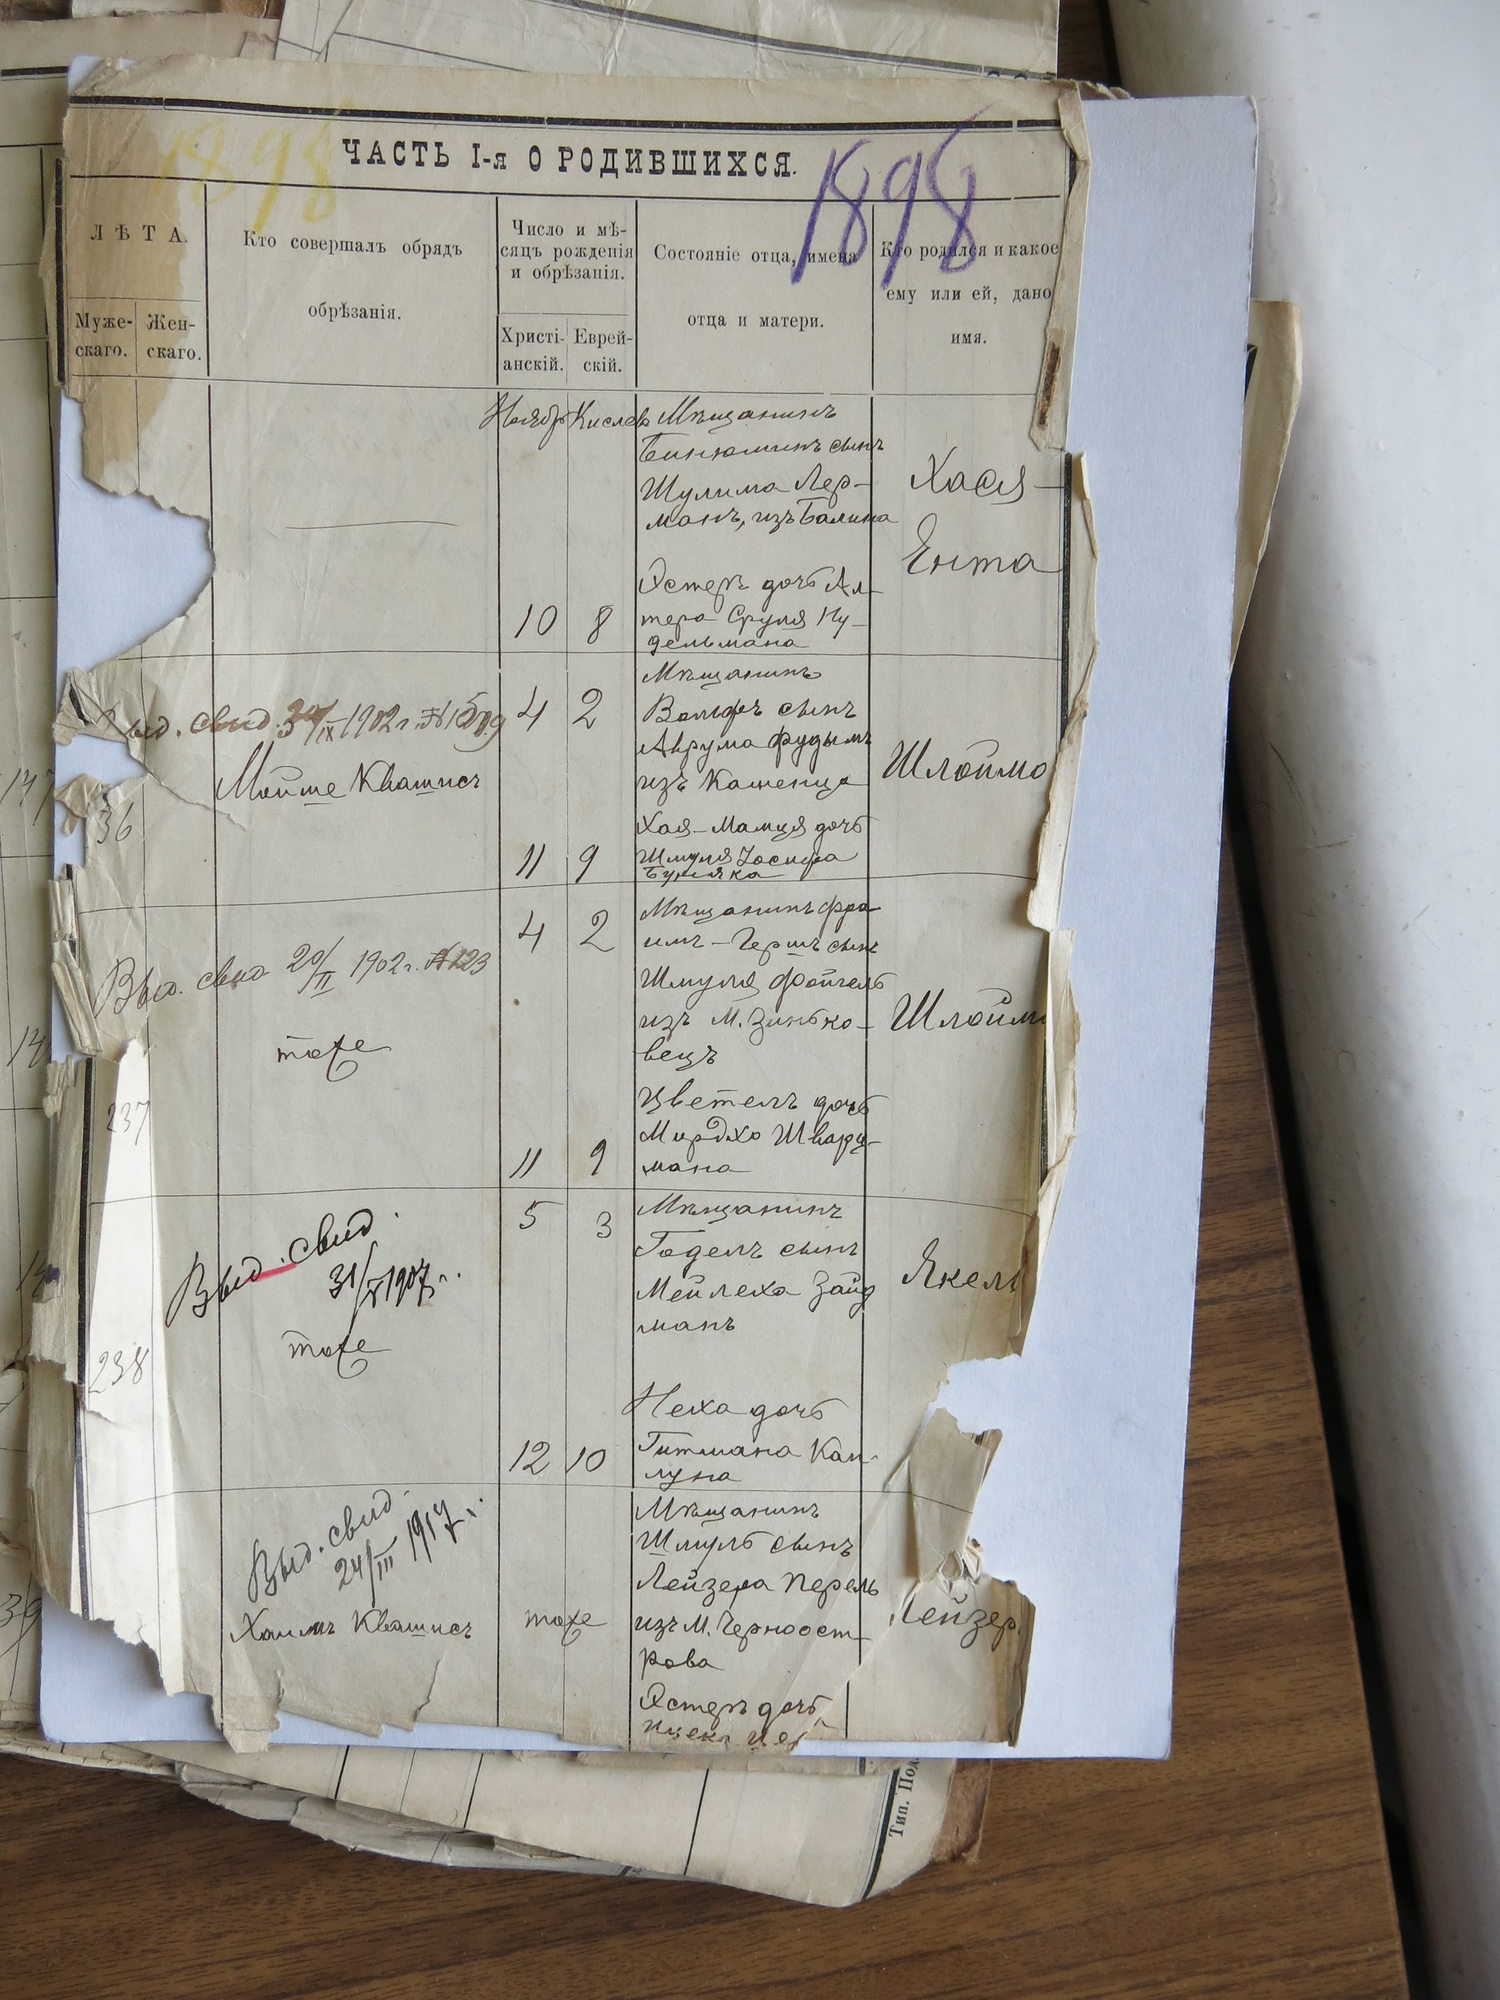 1898
1898
ЧАСТЬ I-я О РОДИВШИХСЯ.
ЛѢТА.
Муже-
скаго.
Жен-
скаго.
Кто совершалъ обрядъ
обрѣзанія.
Число и мѣ-
сяцъ рожденія
и обрѣзанія.
Христі-
анскій.
Еврей-
скій.
Состояніе отца, имена
отца и матери.
Кто родился и какое
ему или ей, дано
имя.
Ноябр Кислев
10 8
Мѣщанинъ
Бинюминъ сынъ
Шулима Лер-
манъ, изъ Балина
Эстеръ дочь Ал-
тера Сруля Ну-
дельмана
Хася-
Ента
36
Выд. свид. 1902 г. № 1509
Мойше Квашис
4 2
11 9
Мѣщанинъ
Вольфъ сынъ
Аврума Фудымъ
изъ Каменца
Хая-Мамця дочь
Шмуля Іосифа
Шлоймо
237
Выд. свид 20/II 1902 г. № 123
тоже
4 2
11 9
Мѣщанинъ Фро-
имъ-Гершъ сынъ
Шмуля Фойгель
изъ М. Зинько-
вецъ
Цветель дочь
Мордхо Шварц-
мана
Шлойм
238
Выд. свид.
31/V 1907 г.
тоже
5 3
12 10
Мѣщанинъ
Годель сынъ
Мейлеха Зайд
манъ
Неха дочь
Гитмана Кап-
луна
Якель
Выд. свид.
24/III 1917 г.
Хаимъ Квашис
тоже
Мѣщанинъ
Шмуль сынъ
Лейзера Перель
изъ М. Черноост-
рова
Эстеръ дочь
Лейзер
Тип. Под